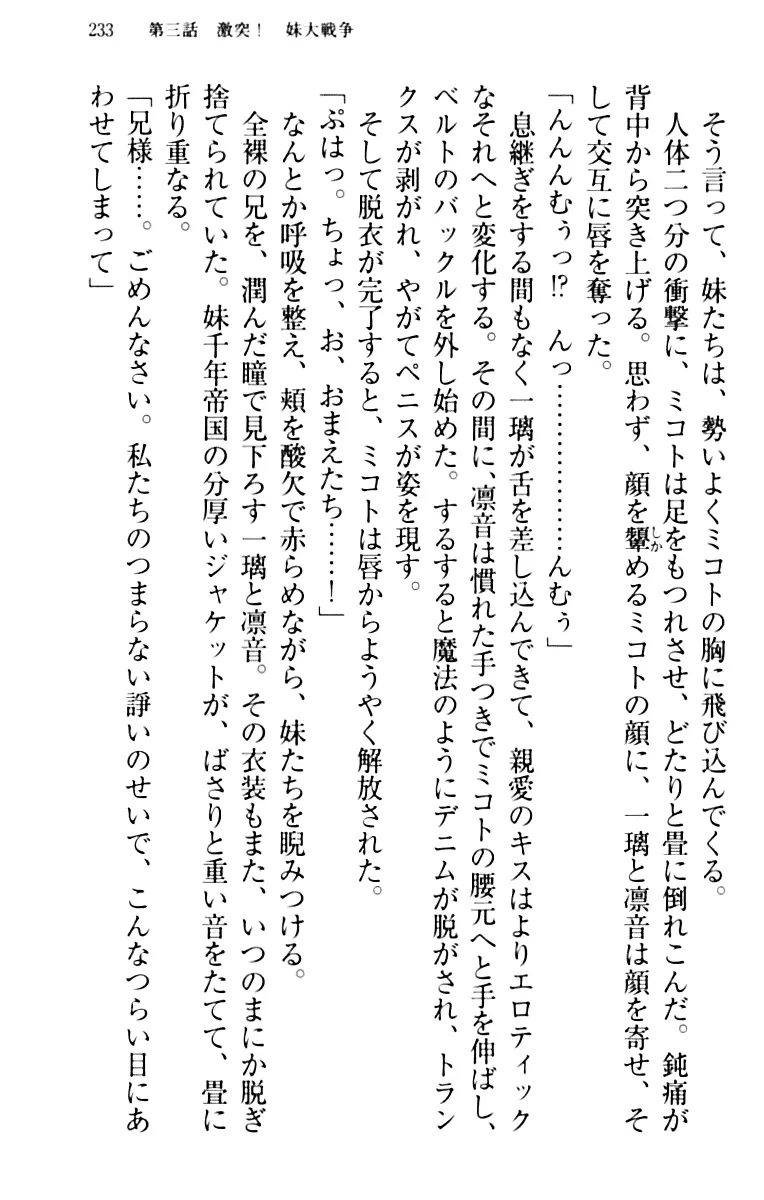 233　第三話　激突！　妹大戦争
　そう言って、妹たちは、勢いよくミコトの胸に飛び込んでくる。
　人体二つ分の衝撃に、ミコトは足をもつれさせ、どたりと畳に倒れこんだ。鈍痛が
背中から突き上げる。思わず、顔を顰しかめるミコトの顔に、一璃と凛音は顔を寄せ、そ
して交互に唇を奪った。
「んんんむぅっ!?　んっ………………んむぅ」
　息継ぎをする間もなく一璃が舌を差し込んできて、親愛のキスはよりエロティック
なそれへと変化する。その間に、凛音は慣れた手つきでミコトの腰元へと手を伸ばし、
ベルトのバックルを外し始めた。するすると魔法のようにデニムが脱がされ、トラン
クスが剥がれ、やがてペニスが姿を現す。
　そして脱衣が完了すると、ミコトは唇からようやく解放された。
「ぷはっ。ちょっ、お、おまえたち……！」
　なんとか呼吸を整え、頬を酸欠で赤らめながら、妹たちを睨みつける。
　全裸の兄を、潤んだ瞳で見下ろす一璃と凛音。その衣装もまた、いつのまにか脱ぎ
捨てられていた。妹千年帝国の分厚いジャケットが、ばさりと重い音をたてて、畳に
折り重なる。
「兄様……。ごめんなさい。私たちのつまらない諍いのせいで、こんなつらい目にあ
わせてしまって」